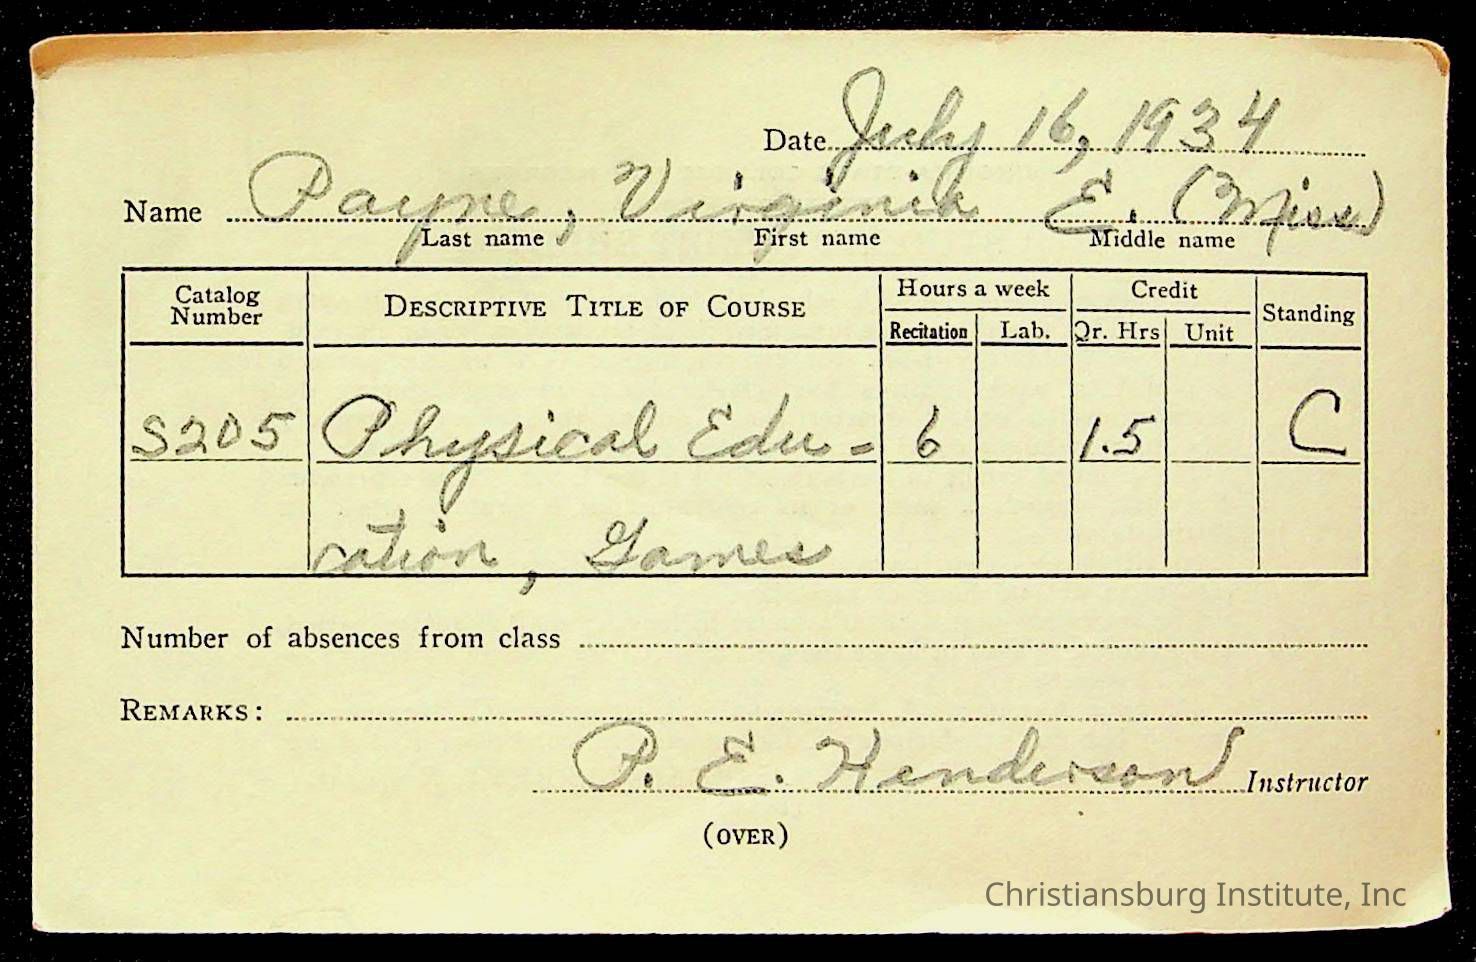 Date July 16, 1934
Name Payne, Virginia E. (Miss)
Last name First name Middle name
Catalog Number DESCRIPTIVE TITLE OF COURSE Hours a week Credit Standing
Recitation Lab. Qr. Hrs Unit
S205 Physical Edu- 6 1.5 C
cation, Games
Number of absences from class
REMARKS:
P. E. Henderson Instructor
(OVER)
Christiansburg Institute, Inc